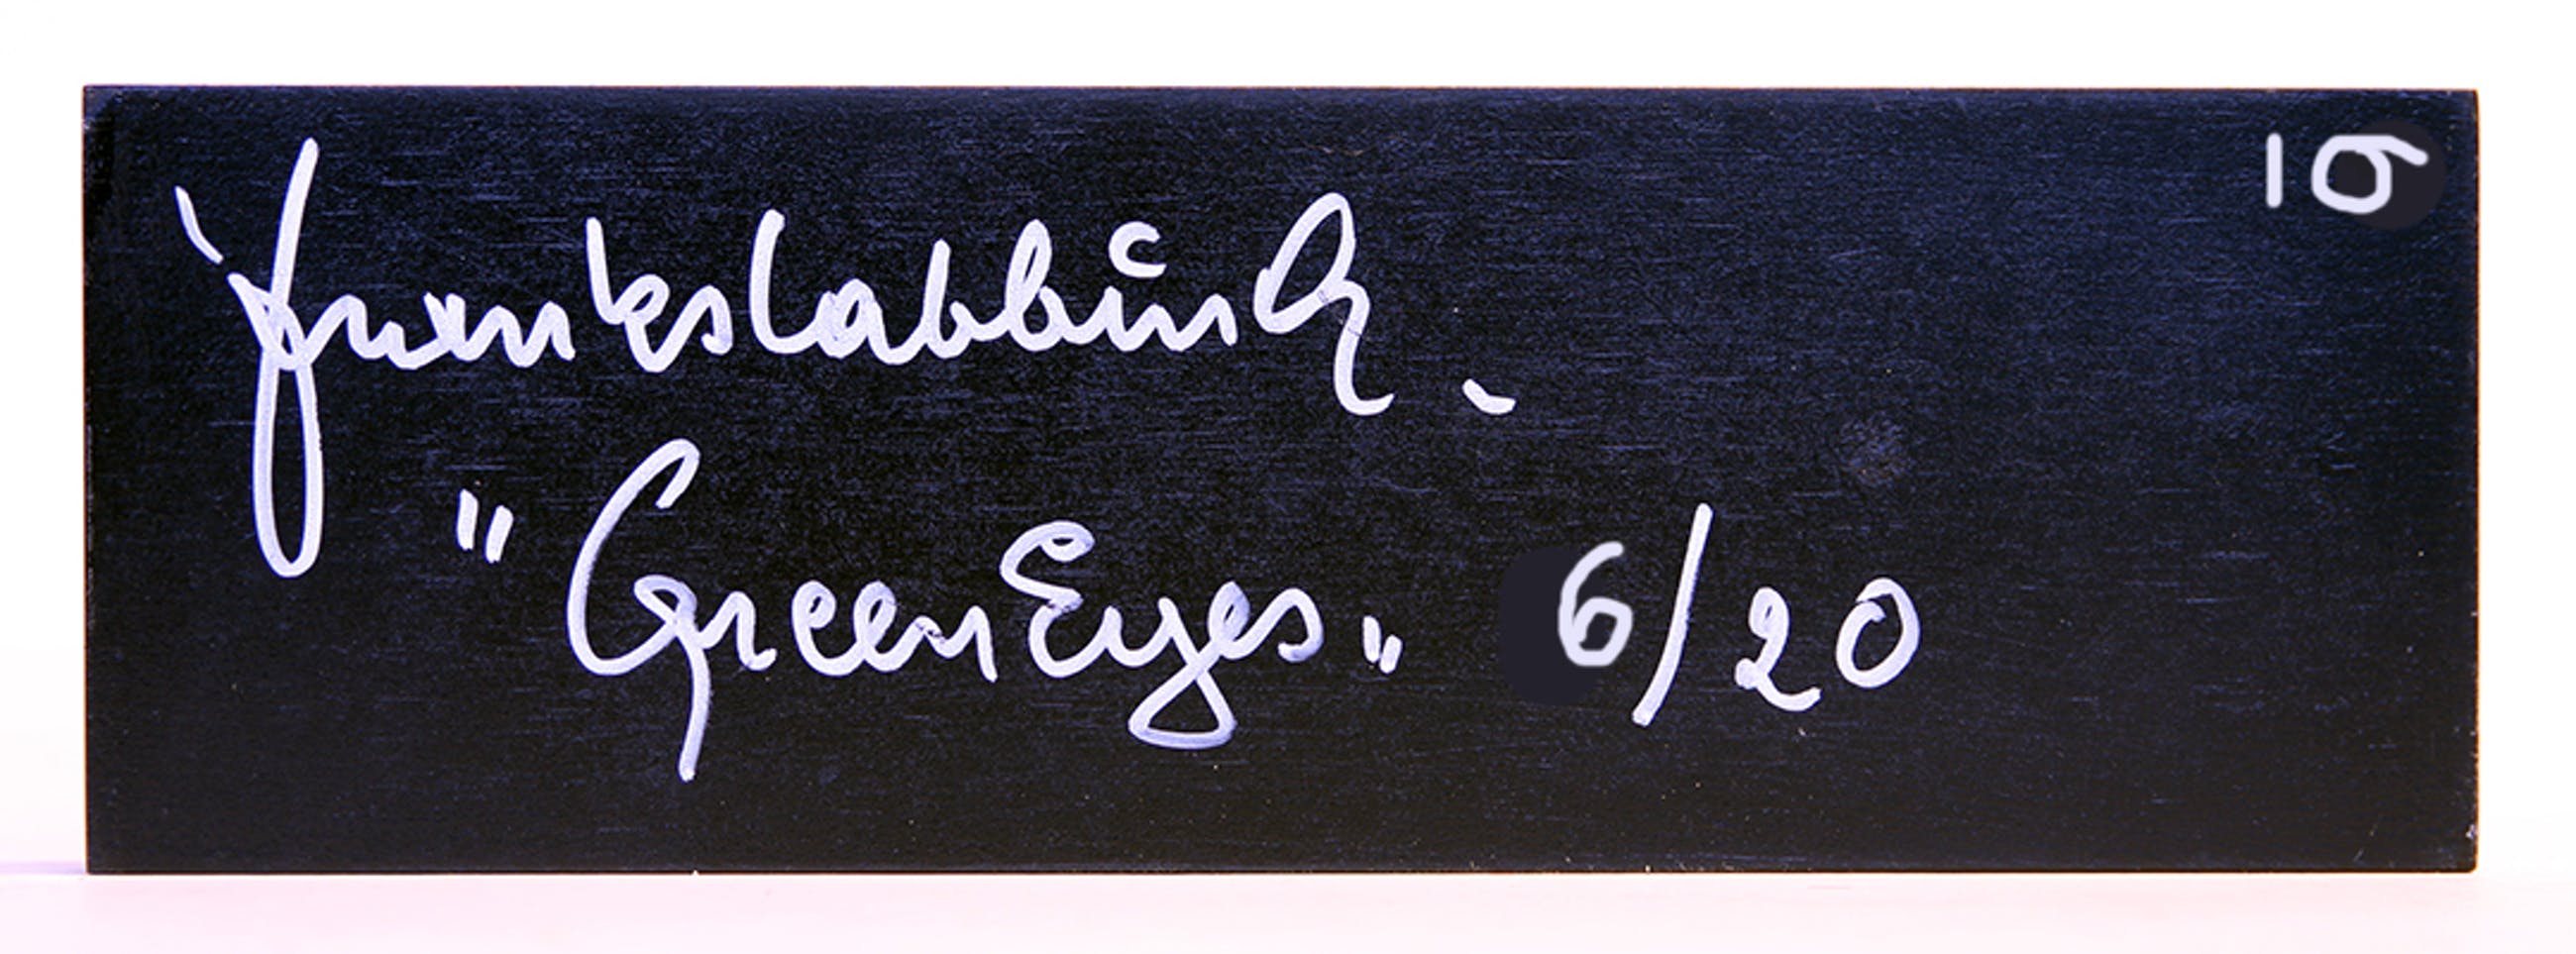 10
Frank Slabbinck.
"Green Eyes" 6/20